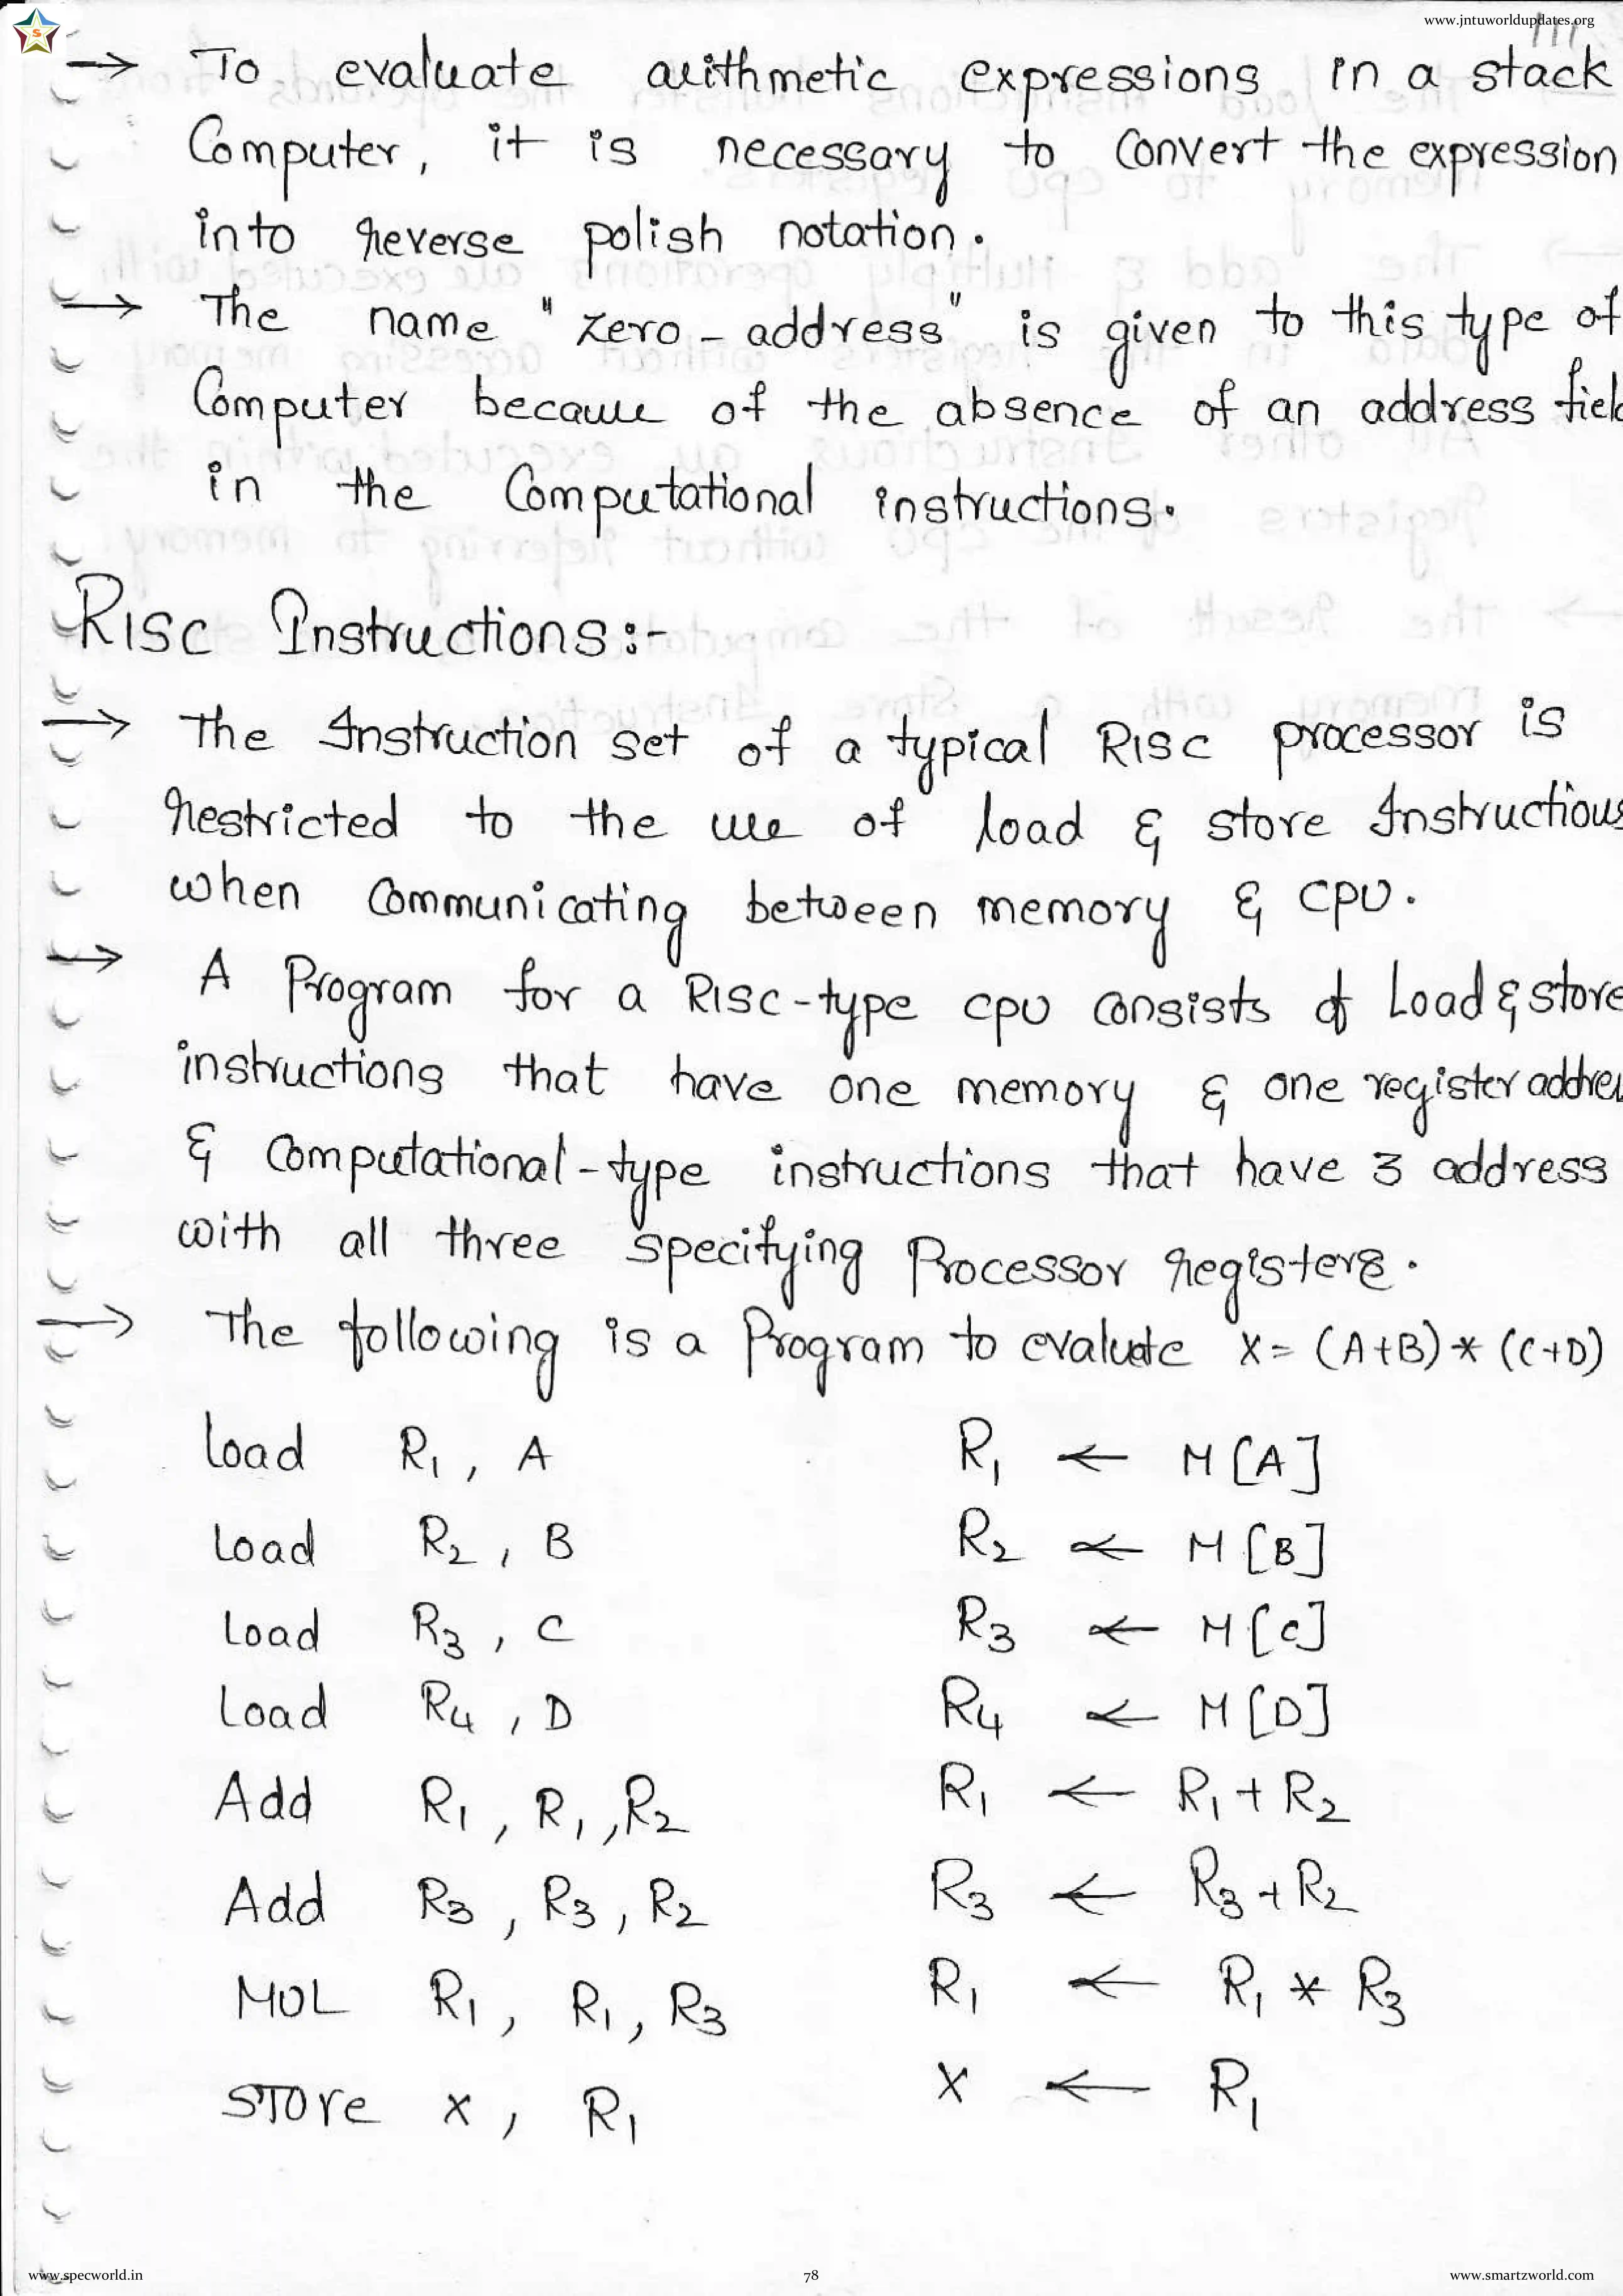 www.jntuworldupdates.org
111
→ To evaluate arithmetic expressions in a stack
Computer, it is necessary to convert the expression
into reverse polish notation.
→ The name "zero-address" is given to this type of
Computer because of the absence of an address fiel
in the Computational instructions.
RISC Instructions:-
→ The Instruction set of a typical RISC processor is
restricted to the use of load & store Instructions
when communicating between memory & CPU.
→ A Program for a RISC-type CPU consists of Load & store
instructions that have one memory & one register addres
& computational-type instructions that have 3 address
with all three specifying Processor registers.
→ The following is a Program to evaluate X = (A+B) * (C+D)
Load R1, A R1 ← M[A]
Load R2, B R2 ← M[B]
Load R3, C R3 ← M[C]
Load R4, D R4 ← M[D]
Add R1, R1, R2 R1 ← R1 + R2
Add R3, R3, R2 R3 ← R3 + R2
MUL R1, R1, R3 R1 ← R1 * R3
STORE X, R1 X ← R1
www.specworld.in 78 www.smartzworld.com